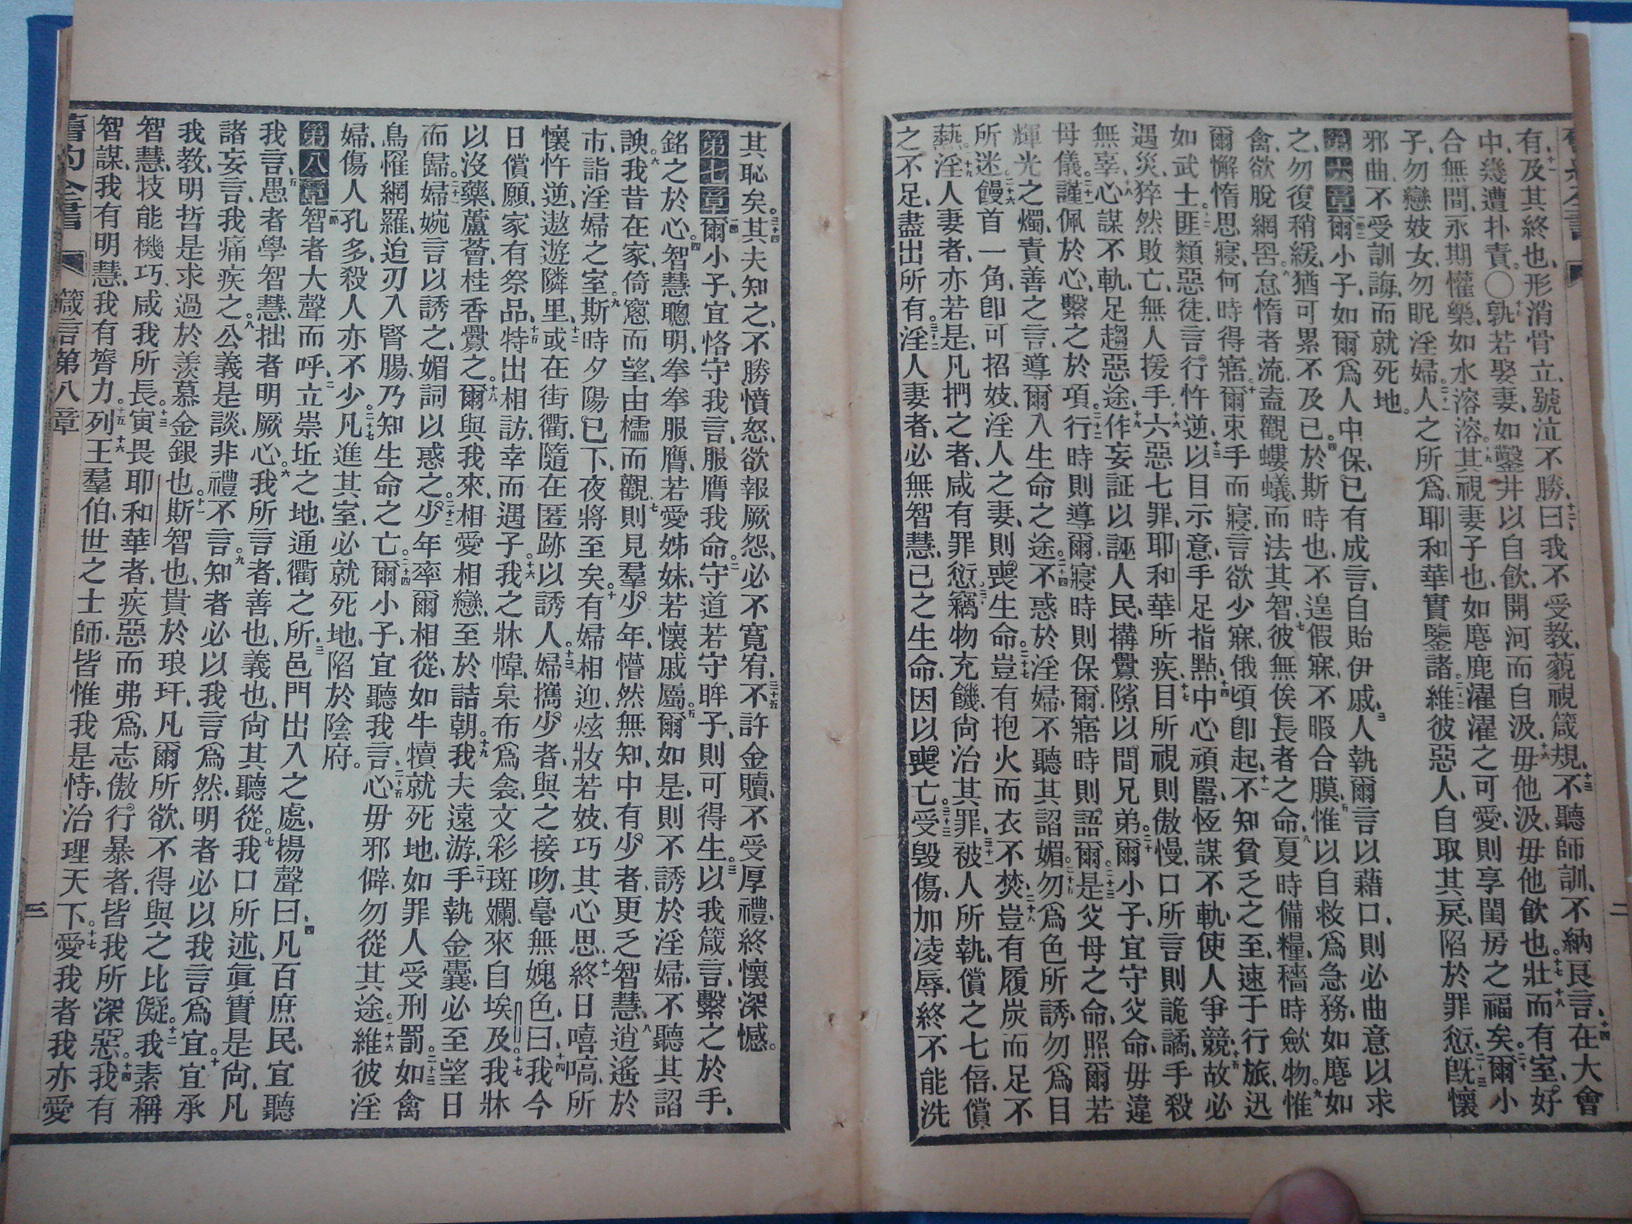 有及其終也形消骨立號泣不勝曰我不受教藐視箴規不聽師訓不納良言在大會
中幾遭扑責〇孰若娶妻如鑿井以自飲開河而自汲毋他汲毋他飲也壯而有室好
合無間永期懽樂如水溶溶其視妻子也如麀鹿濯濯之可愛則享閨房之福矣爾小
子勿戀妓女勿昵淫婦人之所爲耶和華實鑒諸維彼惡人自取其戾陷於罪愆旣懷
邪曲不受訓誨而就死地
第六章爾小子如爾爲人中保已有成言自貽伊戚人執爾言以藉口則必曲意以求
之勿復稍緩猶可累不及已於斯時也不遑假寐不暇合膜惟以自救爲急務如麀如
禽欲脫網罟怠惰者流盍觀螻蟻而法其智彼無俟長者之命夏時備糧穡時歛物惟
爾懈惰思寢何時得寤爾束手而寢言欲少寐俄頃卽起不知貧乏之至速于行旅迅
如武士匪類惡徒言行忤逆以目示意手足指點中心頑嚚恆謀不軌使人爭競故必
遇災猝然敗亡無人援手六惡七罪耶和華所疾目所視則傲慢口所言則詭譎手殺
無辜心謀不軌足趨惡途作妄証以誣人民搆釁隙以間兄弟爾小子宜守父命毋違
母儀謹佩於心繫之於項行時則導爾寢時則保爾寤時則語爾是父母之命照爾若
輝光之燭責善之言導爾入生命之途不惑於淫婦不聽其諂媚勿爲色所誘勿爲目
所迷饅首一角卽可招妓淫人之妻則喪生命豈有抱火而衣不焚豈有履炭而足不
熱淫人妻者亦若是凡捫之者咸有罪愆竊物充饑尙治其罪被人所執償之七倍償
之不足盡出所有淫人妻者必無智慧已之生命因以喪亡受毀傷加凌辱終不能洗
二
其恥矣其夫知之不勝憤怒欲報厥怨必不寬宥不許金贖不受厚禮終懷深憾
第七章爾小子宜恪守我言服膺我命守道若守眸子則可得生以我箴言繫之於手
銘之於心智慧聰明拳拳服膺若愛姊妹若懷戚屬爾如是則不誘於淫婦不聽其諂
諛我昔在家倚窻而望由櫺而觀則見羣少年懵然無知中有少者更乏智慧逍遙於
市詣淫婦之室斯時夕陽已下夜將至矣有婦相迎炫妝若妓巧其心思終日嘻嗃所
懷忤逆遨遊隣里或在街衢隨在匿跡以誘人婦攜少者與之接吻毫無媿色曰我今
日償願家有祭品特出相訪幸而遇子我之牀幃枲布爲衾文彩斑斕來自埃及我牀
以沒藥蘆薈桂香釁之爾與我來相愛相戀至於詰朝我夫遠游手執金囊必至望日
而歸婦婉言以誘之媚詞以惑之少年率爾相從如牛犢就死地如罪人受刑罰如禽
鳥罹網羅迨刃入腎腸乃知生命之亡爾小子宜聽我言心毋邪僻勿從其途維彼淫
婦傷人孔多殺人亦不少凡進其室必就死地陷於陰府
第八章智者大聲而呼立崇坵之地通衢之所邑門出入之處楊聲曰凡百庶民宜聽
我言愚者學智慧拙者明厥心我所言者善也義也尙其聽從我口所述眞實是尙凡
諸妄言我痛疾之公義是談非禮不言知者必以我言爲然明者必以我言爲宜宜承
我教明哲是求過於羨慕金銀也斯智也貴於琅玕凡爾所欲不得與之比儗我素稱
智慧技能機巧咸我所長寅畏耶和華者疾惡而弗爲志傲行暴者皆我所深惡我有
智謀我有明慧我有膂力列王羣伯世之士師皆惟我是恃治理天下愛我者我亦愛
舊約全書 箴言第八章 三